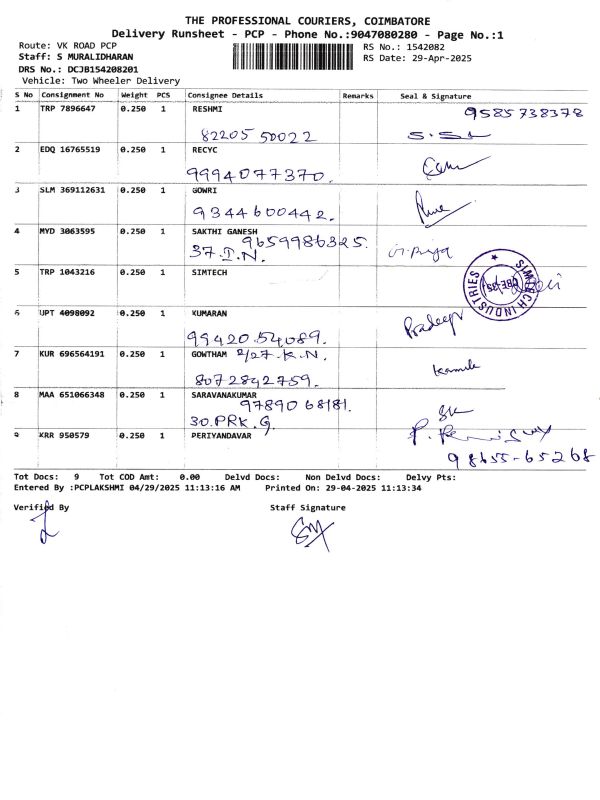 THE PROFESSIONAL COURIERS, COIMBATORE
Delivery Runsheet - PCP - Phone No.:9047080280 - Page No.:1
Route: VK ROAD PCP
RS No.: 1542082
Staff: S MURALIDHARAN
RS Date: 29-Apr-2025
DRS No.: DCJB154208201
Vehicle: Two Wheeler Delivery
S No Consignment No Weight PCS Consignee Details Remarks Seal & Signature
1 TRP 7896647 0.250 1 RESHMI 9585738378
82205 50022
2 EDQ 16765519 0.250 1 RECYC
9994077370.
3 SLM 369112631 0.250 1 GOWRI
9344600442.
4 MYD 3063595 0.250 1 SAKTHI GANESH
9659986325.
37.I.N.
5 TRP 1043216 0.250 1 SIMTECH
SIMTECH INDUSTRIES
CBE-35
6 UPT 4098092 0.250 1 KUMARAN
99420 54089. Pradeep
7 KUR 696564191 0.250 1 GOWTHAM 2/27.K.N.
8072842759.
8 MAA 651066348 0.250 1 SARAVANAKUMAR
97890 68181.
30.PRK.G.
9 KRR 950579 0.250 1 PERIYANDAVAR
98655-65268
Tot Docs: 9 Tot COD Amt: 0.00 Delvd Docs: Non Delvd Docs: Delvy Pts:
Entered By :PCPLAKSHMI 04/29/2025 11:13:16 AM Printed On: 29-04-2025 11:13:34
Verified By Staff Signature